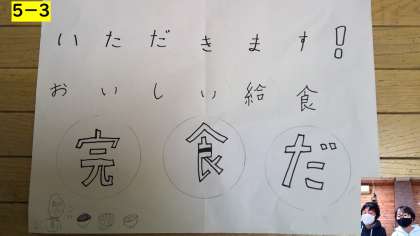 5-3
いただきます!
おいしい給食
完食だ